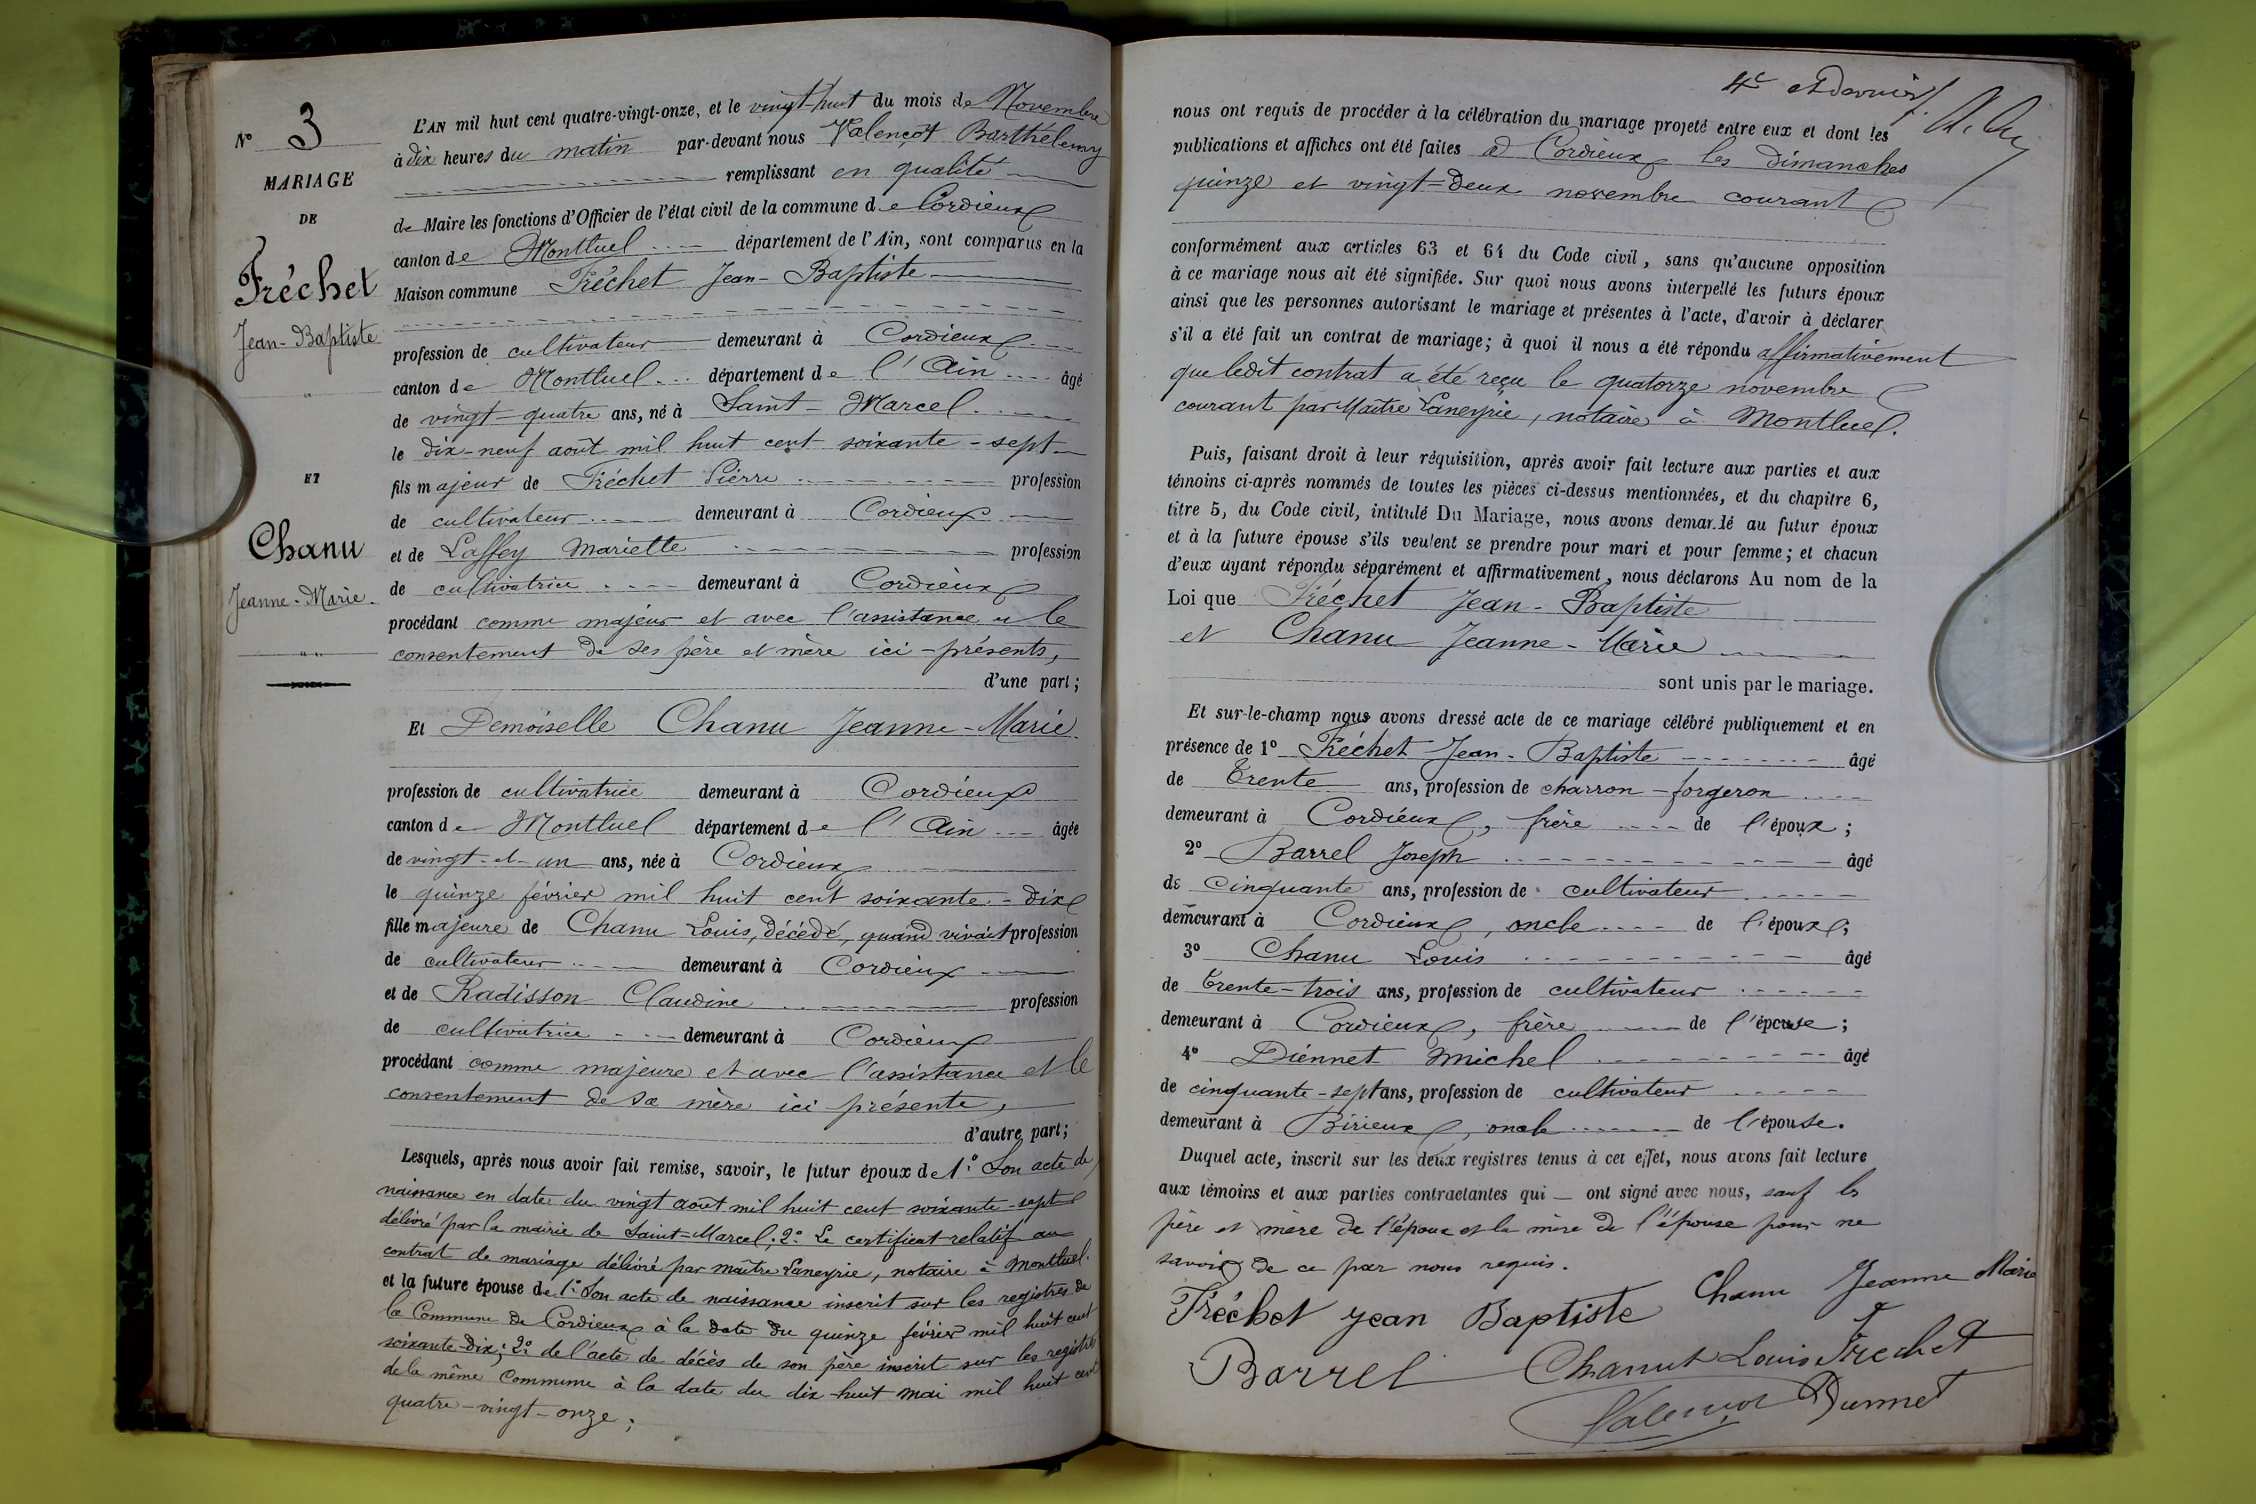 N° 3
MARIAGE
DE
Fréchet
Jean-Baptiste
ET
Chanu
Jeanne-Marie.
L'AN mil huit cent quatre-vingt-onze, et le vingt-huit du mois de Novembre
à dix heures du matin par-devant nous Valençot Barthélemy
remplissant en qualité
de Maire les fonctions d'Officier de l'état civil de la commune de Cordieux
canton de Montluel département de l'Ain, sont comparus en la
Maison commune Fréchet Jean-Baptiste
profession de cultivateur demeurant à Cordieux
canton de Montluel département de l'Ain âgé
de vingt-quatre ans, né à Saint-Marcel
le dix-neuf août mil huit cent soixante-sept
fils majeur de Fréchet Pierre profession
de cultivateur demeurant à Cordieux
et de Laffey Mariette profession
de cultivatrice demeurant à Cordieux
procédant comme majeur et avec l'assistance et le
consentement de ses père et mère ici-présents,
d'une part;
Et Demoiselle Chanu Jeanne-Marie
profession de cultivatrice demeurant à Cordieux
canton de Montluel département de l'Ain âgée
de vingt-et-un ans, née à Cordieux
le quinze février mil huit cent soixante-dix
fille majeure de Chanu Louis, décédé, quand vivait profession
de cultivateur demeurant à Cordieux
et de Radisson Claudine profession
de cultivatrice demeurant à Cordieux
procédant comme majeure et avec l'assistance et le
consentement de sa mère ici présente,
d'autre part;
Lesquels, après nous avoir fait remise, savoir, le futur époux de 1.° Son acte de
naissance en date du vingt août mil huit cent soixante-sept
délivré par la mairie de Saint-Marcel; 2.° Le certificat relatif au
contrat de mariage délivré par maître Laneyrie, notaire à Montluel.
et la future épouse de 1.° Son acte de naissance inscrit sur les registres de
la Commune de Cordieux à la date du quinze février mil huit cent
soixante-dix; 2.° de l'acte de décès de son père inscrit sur les registres
de la même Commune à la date du dix-huit mai mil huit cent
quatre-vingt-onze;
4e et dernier
nous ont requis de procéder à la célébration du mariage projeté entre eux et dont les
publications et affiches ont été faites à Cordieux les dimanches
quinze et vingt-deux novembre courant
conformément aux articles 63 et 64 du Code civil, sans qu'aucune opposition
à ce mariage nous ait été signifiée. Sur quoi nous avons interpellé les futurs époux
ainsi que les personnes autorisant le mariage et présentes à l'acte, d'avoir à déclarer
s'il a été fait un contrat de mariage; à quoi il nous a été répondu affirmativement
que ledit contrat a été reçu le quatorze novembre
courant par Maître Laneyrie, notaire à Montluel.
Puis, faisant droit à leur réquisition, après avoir fait lecture aux parties et aux
témoins ci-après nommés de toutes les pièces ci-dessus mentionnées, et du chapitre 6,
titre 5, du Code civil, intitulé Du Mariage, nous avons demandé au futur époux
et à la future épouse s'ils veulent se prendre pour mari et pour femme; et chacun
d'eux ayant répondu séparément et affirmativement, nous déclarons Au nom de la
Loi que Fréchet Jean-Baptiste
et Chanu Jeanne-Marie
sont unis par le mariage.
Et sur-le-champ nous avons dressé acte de ce mariage célébré publiquement et en
présence de 1° Fréchet Jean-Baptiste âgé
de Trente ans, profession de charron-forgeron
demeurant à Cordieux, frère de l'époux;
2° Barrel Joseph âgé
de Cinquante ans, profession de cultivateur
demeurant à Cordieux, oncle de l'époux;
3° Chanu Louis âgé
de Trente-trois ans, profession de cultivateur
demeurant à Cordieux, frère de l'épouse;
4° Diennet Michel âgé
de cinquante-sept ans, profession de cultivateur
demeurant à Birieux, oncle de l'épouse.
Duquel acte, inscrit sur les deux registres tenus à cet effet, nous avons fait lecture
aux témoins et aux parties contractantes qui ont signé avec nous, sauf les
père et mère de l'époux et la mère de l'épouse pour ne
savoir de ce par nous requis.
Fréchet Jean Baptiste Chanu Jeanne Marie
Barrel Chanut Louis Frechet
Valençot